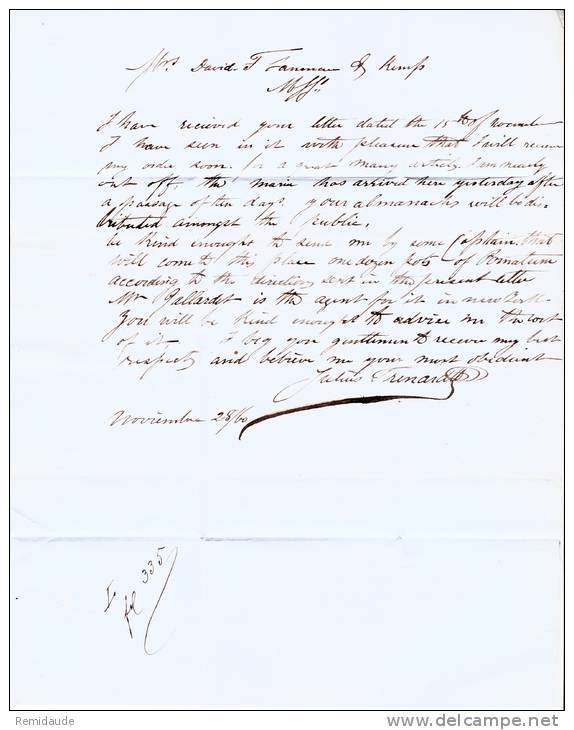 Mrs David T Lanman & Kemp
Mssrs
I have recieved your letter dated the 15th of november
I have seen in it with pleasure that I will receive
my order soon. for a great many articles I am nearly
out off, the maria has arrived here yesterday after
a passage of ten days. your almanachs will be dis-
tributed amongst the public.
be kind enought to send me by some Captain that
will come to this place one dozen pots of Pomatum
according to the direction sent in the present letter
Mr Gallardet is the agent for it in new York
You will be kind enought to advise me the cost
of it. I beg you gentlemen to receive my best
respects and believe me your most obedient
Julius Trenard
Noviembre 28/60
fol 335
Remidaude
www.delcampe.net